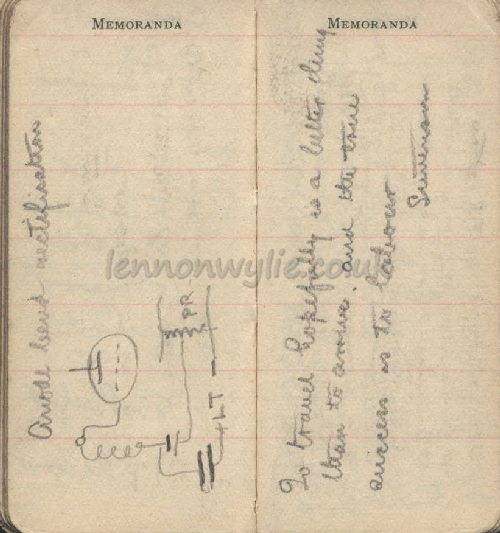 MEMORANDA
Anode bend rectification
PR
+ LT -
MEMORANDA
To travel hopefully is a better thing
than to arrive. and the true
success is to labour
Stevenson
lennonwylie.co.uk